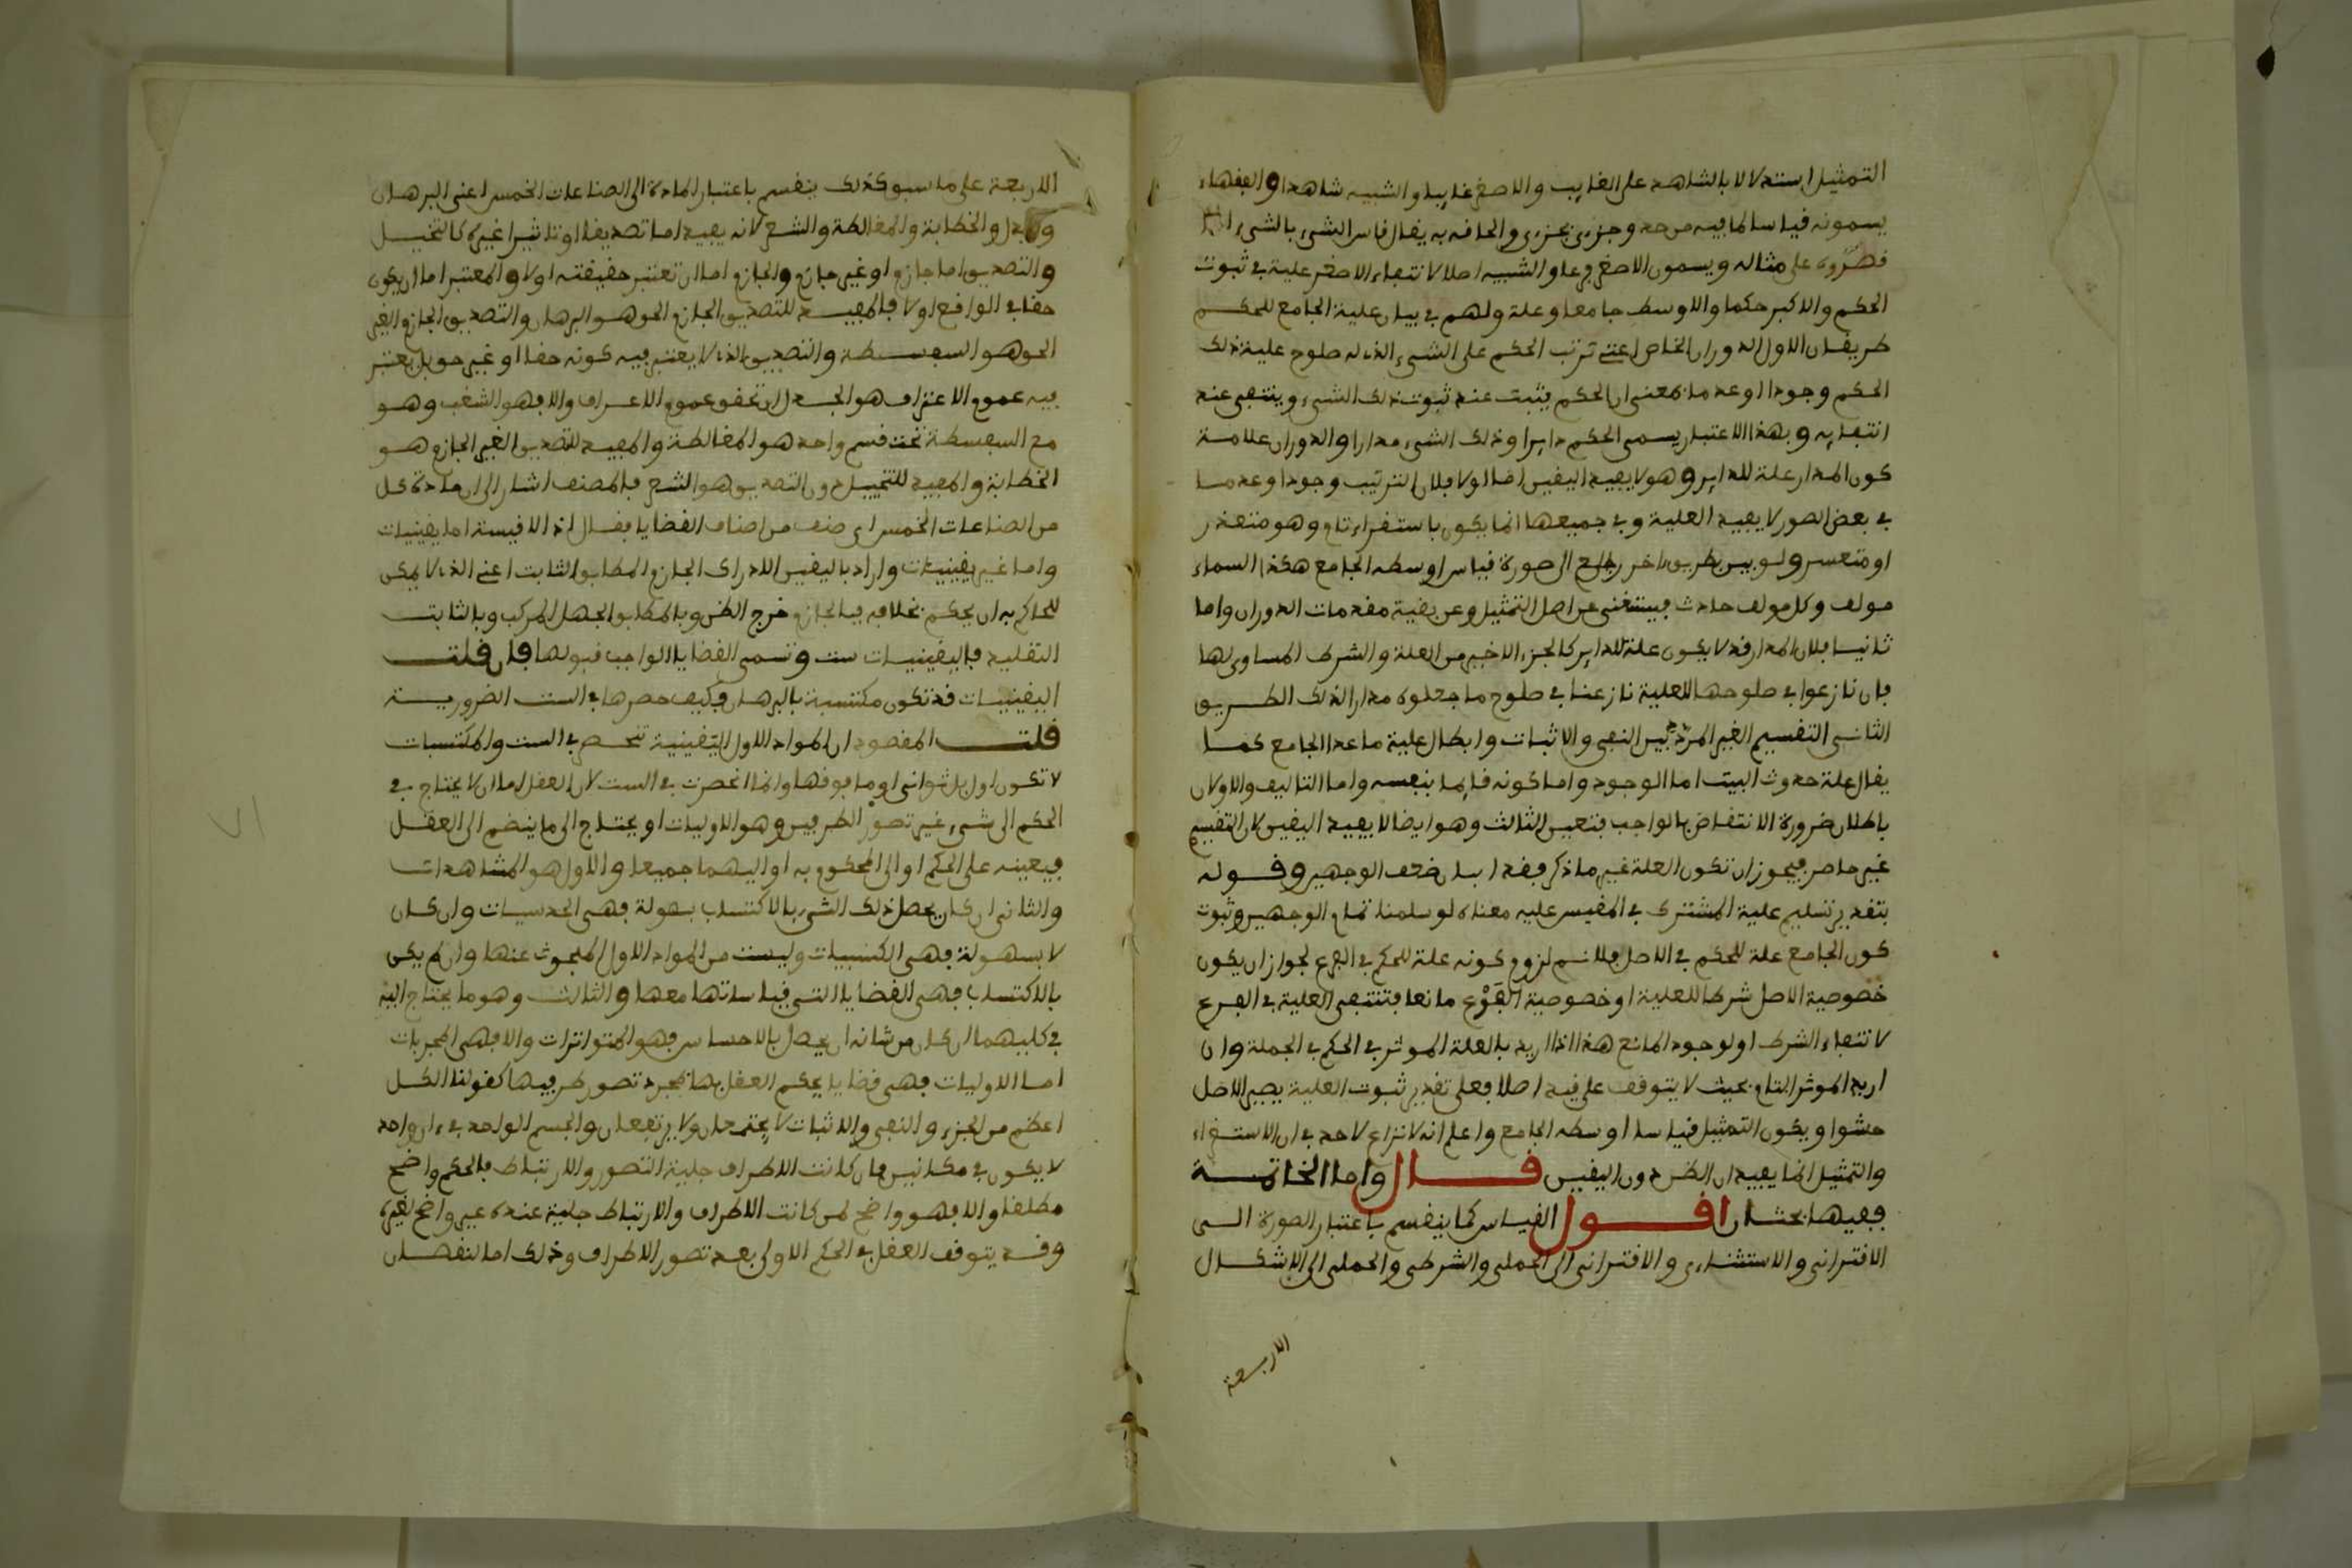 التمثيل استدلالا بالشاهد على الغايب والاصغر غايبا والشبيه شاهدا والفقهاء
يسمونه قياسا لما فيه من حد وجزءى بجزءى والحاقه به يقال قاس الشيء بالشيء اذا
قدره على مثاله ويسمون الاصغر فرعا والشبيه اصلا لانتفاء الاصغر عليه في ثبوت
الحكم والاكبر حكما والاوسط جامعا وعلة ولهم في بيان علية الجامع للحكم
طريقان الاول الدوران الخاص اعنى ترتب الحكم على الشيء الذى له صلوح علية ذلك
الحكم وجودا او عدما بمعنى ان الحكم يثبت عند ثبوت ذلك الشيء وينتفى عند
انتفايه وبهذا الاعتبار يسمى الحكم دايرا وذلك الشيء مدارا والدوران علامة
كون المدار علة للداير وهو لا يفيد اليقين اما اولا فلان الترتيب وجودا وعدما
في بعض الصور لا يفيد العلية وفي جميعها انما يكون باستقراء تام وهو متعذر
او متعسر ولو بين بطريق اخر رجع الى صورة قياس اوسطه الجامع هكذا السماء
مولف وكل مولف حادث فيستغنى عن اصل التمثيل وعن بقية مقدمات الدوران واما
ثانيا فلان المدار قد لا يكون علة للداير كالجزء الاخير من العلة والشرط المساوى لها
فان نازعوا في صلوحها للعلية نازعنا في صلوح ما جعلوه مدارا لذلك الطريق
الثانى التقسيم الغير المردد بين النفى والاثبات وابطال علية ما عدا الجامع كما
يقال علة حدوث البيت اما الوجود واما كونه قايما بنفسه واما التاليف والاولان
باطلان ضرورة الانتقاض بالواجب فتعين الثالث وهو ايضا لا يفيد اليقين لان التقسيم
غير حاصر فيجوز ان تكون العلة غير ما ذكر فقد ابان ضعف الوجهين وقوله
بتقدير تسليم علية المشترك في المقيس عليه معناه لو سلمنا تمام الوجهين وثبوت
كون الجامع علة للحكم في الاصل فلا نسلم لزوم كونه علة للحكم في الفرع لجواز ان يكون
خصوصية الاصل شرطا للعلية او خصوصية الفرع مانعا فتنتفى العلية في الفرع
لانتفاء الشرط او لوجود المانع هذا اذا اريد بالعلة الموثر في الحكم في الجملة وان
اريد الموثر التام بحيث لا يتوقف على قيد اصلا فعلى تقدير ثبوت العلية يصير الاصل
حشوا ويكون التمثيل قياسا اوسطه الجامع واعلم انه لا نزاع لاحد في ان الاستقراء
والتمثيل انما يفيدان الظن دون اليقين قال واما الخاتمة
ففيها بحثان اقول القياس كما ينقسم باعتبار الصورة الى
الاقترانى والاستثناءى والاقترانى الى الحملى والشرطى والحملى الى الاشكال
الاربعة
الاربعة على ما سبق كذلك ينقسم باعتبار المادة الى الصناعات الخمس اعنى البرهان
والجدل والخطابة والمغالطة والشعر لانه يفيد اما تصديقا او تاثيرا غيره كالتخييل
والتصديق اما جازم او غير جازم والجازم اما ان تعتبر حقيقته اولا والمعتبر اما ان يكون
حقا في الواقع اولا فالمفيد للتصديق الجازم الحق هو البرهان والتصديق الجازم الغير
الحق هو السفسطة والتصديق الذى لا يعتبر فيه كونه حقا او غير حق بل يعتبر
فيه عموم الاعتراف هو الجدل ان تحقق عموم الاعتراف والا فهو الشغب وهو
مع السفسطة تحت قسم واحد هو المغالطة والمفيد للتصديق الغير الجازم هو
الخطابة والمفيد للتخييل دون التصديق هو الشعر فالمصنف اشار الى ان مادة كل
من الصناعات الخمس اى صنف من اصناف القضايا فقال اذ الاقيسة اما يقينيات
واما غير يقينيات واراد باليقين الادراك الجازم المطابق الثابت اعنى الذى لا يمكن
للحاكم به ان يحكم بخلافه فبالجازم خرج الظن وبالمطابق الجهل المركب وبالثابت
التقليد فاليقينيات ست وتسمى القضايا الواجب قبولها فان قلت
اليقينيات قد تكون مكتسبة بالبرهان فكيف حصرها في الست الضرورية
قلت المقصود ان المواد الاول اليقينية تنحصر في الست والمكتسبات
لا تكون اول بل ثوانى او ما فوقها وانما انحصرت في الست لان العقل اما ان لا يحتاج في
الحكم الى شيء غير تصور الطرفين وهو الاوليات او يحتاج الى ما ينضم الى العقل
فيعينه على الحكم او الى المحكوم به او اليهما جميعا والاول هو المشاهدات
والثانى ان كان يحصل ذلك الشيء بالاكتساب بسهولة فهى الحدسيات وان كان
لا بسهولة فهى الكسبيات وليست من المواد الاول المبحوث عنها وان لم يكن
بالاكتساب فهى القضايا التى قياساتها معها والثالث وهو ما يحتاج اليه
في كليهما ان كان من شانه ان يحصل بالاحساس فهو المتواترات والا فهى المجربات
اما الاوليات فهى قضايا يحكم العقل بها بمجرد تصور طرفيها كقولنا الكل
اعظم من الجزء والنفى والاثبات لا يجتمعان ولا يرتفعان والجسم الواحد في ءان واحد
لا يكون في مكانين فان كانت الاطراف جلية التصور والارتباط فالحكم واضح
مطلقا والا فهو واضح لمن كانت الاطراف والارتباط جلية عنده غير واضح لغيره
وقد يتوقف العقل في الحكم الاولى بعد تصور الاطراف وذلك اما لنقصان